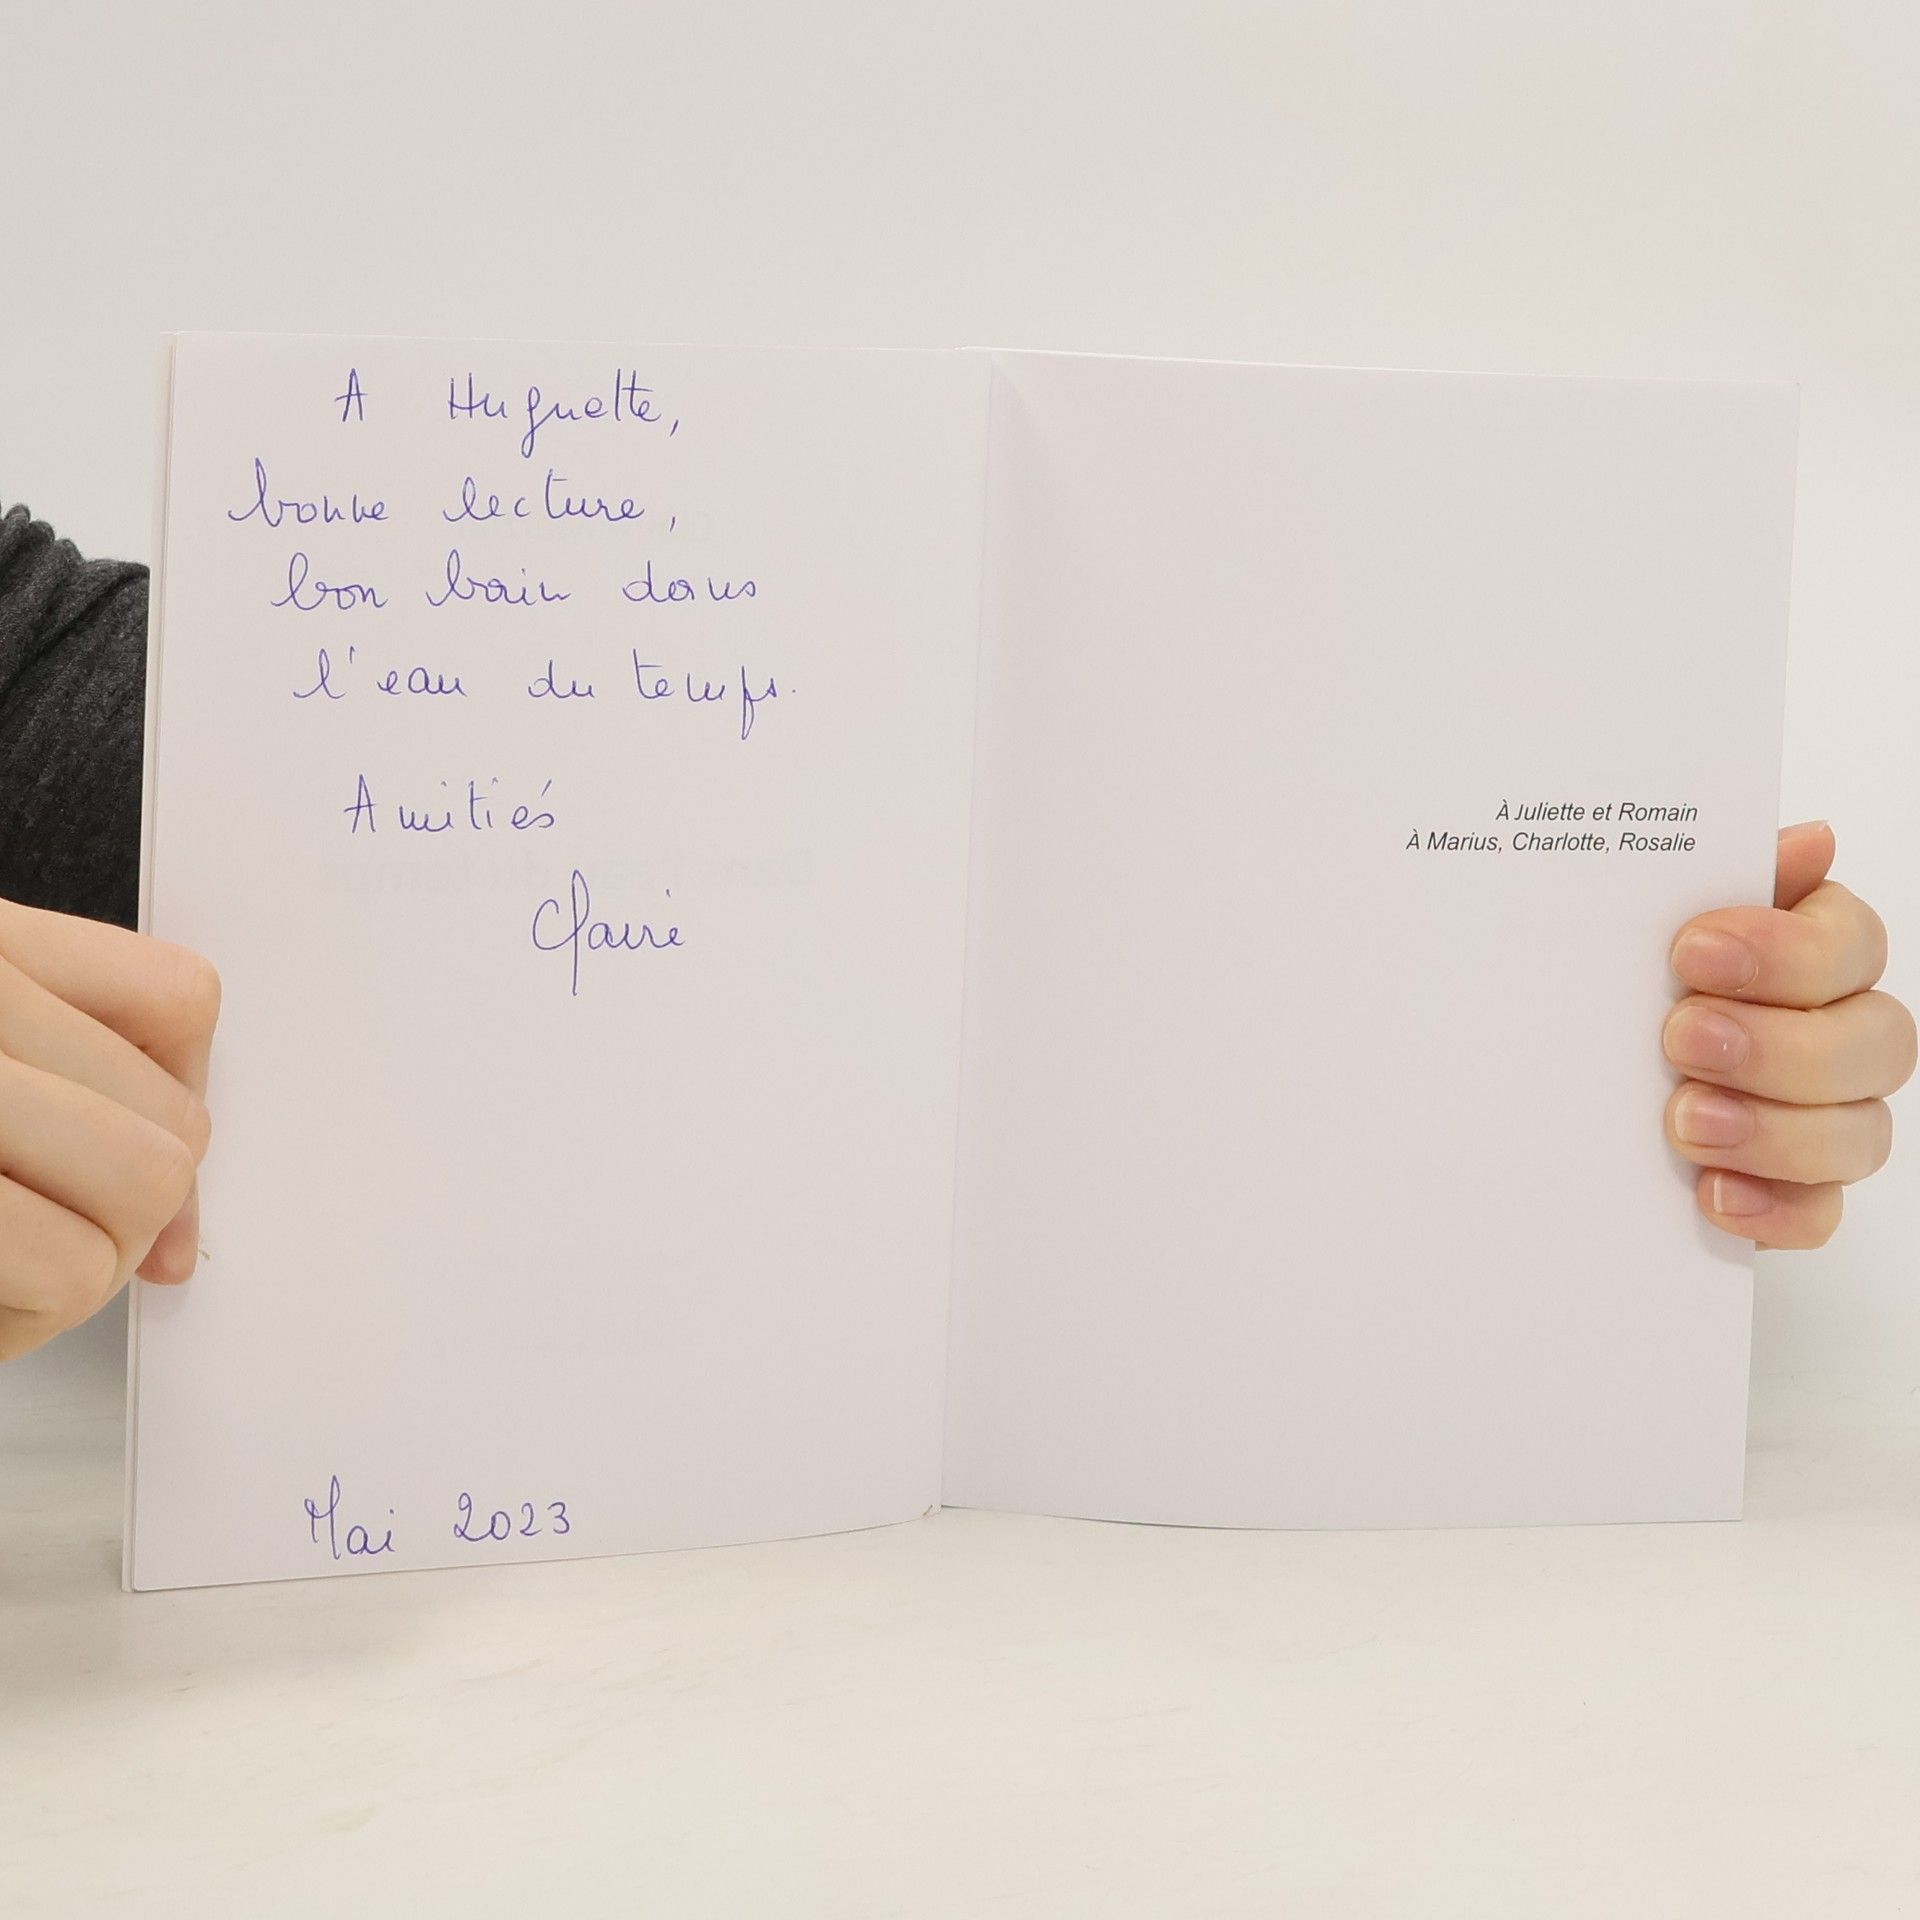 A Huguette,
bonne lecture,
bon bain dans
l'eau du temps.
Amitiés
Claire
Mai 2023
À Juliette et Romain
À Marius, Charlotte, Rosalie